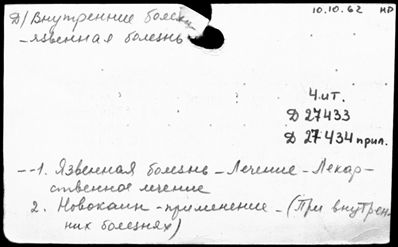 Д/Внутренние болезни
10.10.62 НР
-язвенная болезнь
4.ит.
Д 27433
Д 27434 прил.
--1. Язвенная болезнь-Лечение-Лекар-
ственное лечение
2. Новокаин-применение-(При внутрен-
них болезнях)